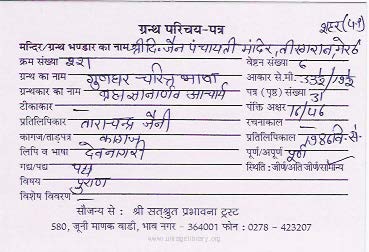 ग्रन्थ परिचय-पत्र
मन्दिर/ग्रन्थ भण्डार का नाम श्री दि॰ जैन पंचायती मंदिर, तीरगरान, मेरठ
क्रम संख्या वेष्टन संख्या ६
ग्रन्थ का नाम गुणधर चरित्र भाषा आकार से.मी.
ग्रन्थकार का नाम ब्रह्मज्ञानार्णव आचार्य पत्र (पृष्ठ) संख्या
टीकाकार पंक्ति अक्षर
प्रतिलिपिकार ताराचन्द जैनी रचनाकाल
कागज/ताड़पत्र कागज प्रतिलिपिकाल
लिपि व भाषा देवनागरी पूर्ण/अपूर्ण पूर्ण
गद्य/पद्य पद्य स्थिति : जीर्ण/अति जीर्ण/सामान्य
विषय पुराण
विशेष विवरण
सौजन्य से : श्री सतश्रुत प्रभावना ट्रस्ट
580, जूनी माणक वाडी, भाव नगर - 364001 फोन : 0278 - 423207